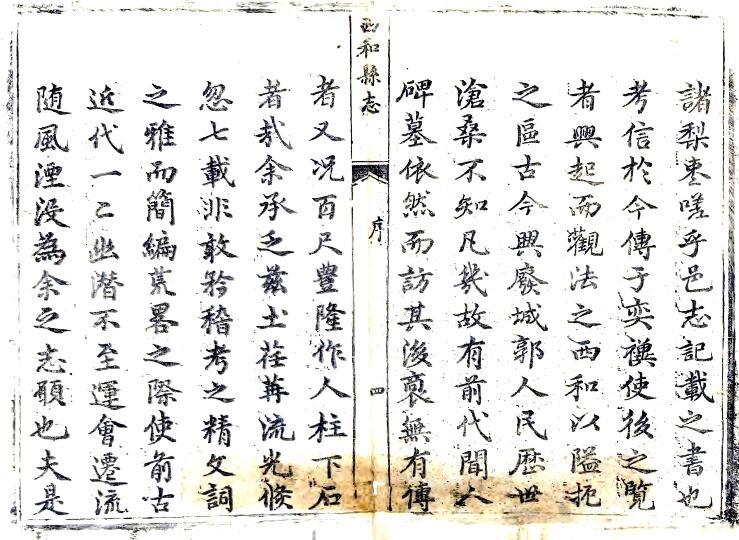 諸梨棗嗟乎邑志記載之書也
考信於今傳于奕禩使後之覽
者興起而觀法之西和以隘扼
之區古今興廢城郭人民歷世
滄桑不知凡幾故有前代聞人
碑墓依然而訪其後裔無有傳
西和縣志
序
四
者又况百尺豐隆作人柱下石
者哉余承乏茲土荏苒流光倐
忽七載非敢矜稽考之精文詞
之雅而簡編荒畧之際使前古
近代一二幽潛不至運會遷流
随風湮没為余之志願也夫是